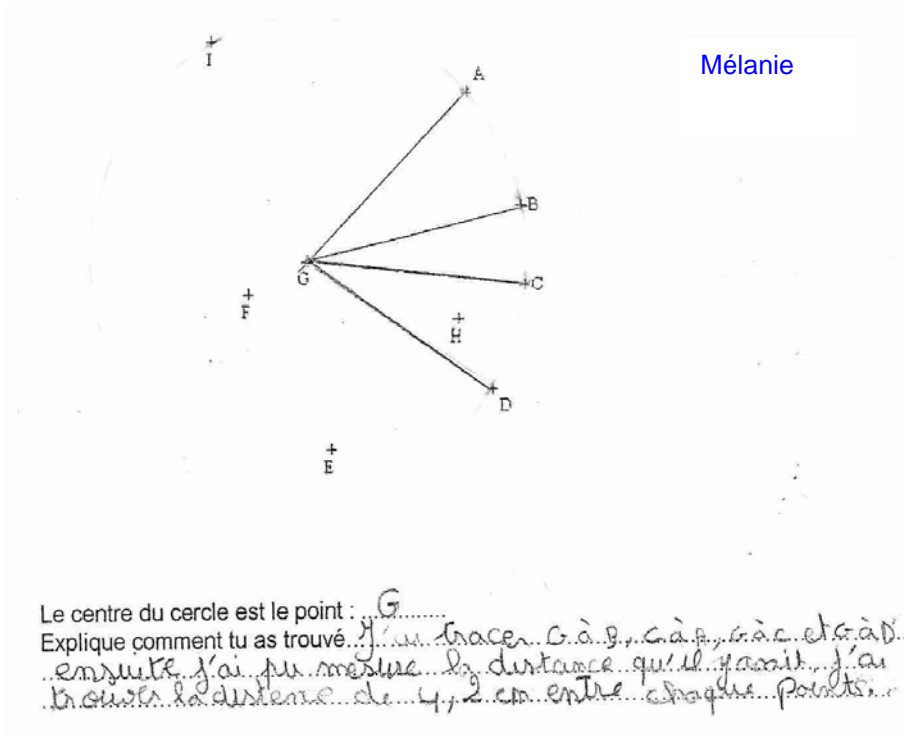 I
A
Mélanie
B
G
C
F
H
D
E
Le centre du cercle est le point : G
Explique comment tu as trouvé. J'ai tracer G à B, G à A, G à C et G à D
ensuite j'ai pu mesure la distance qu'il yavait, j'ai
trouver la distence de 4,2 cm entre chaque points.